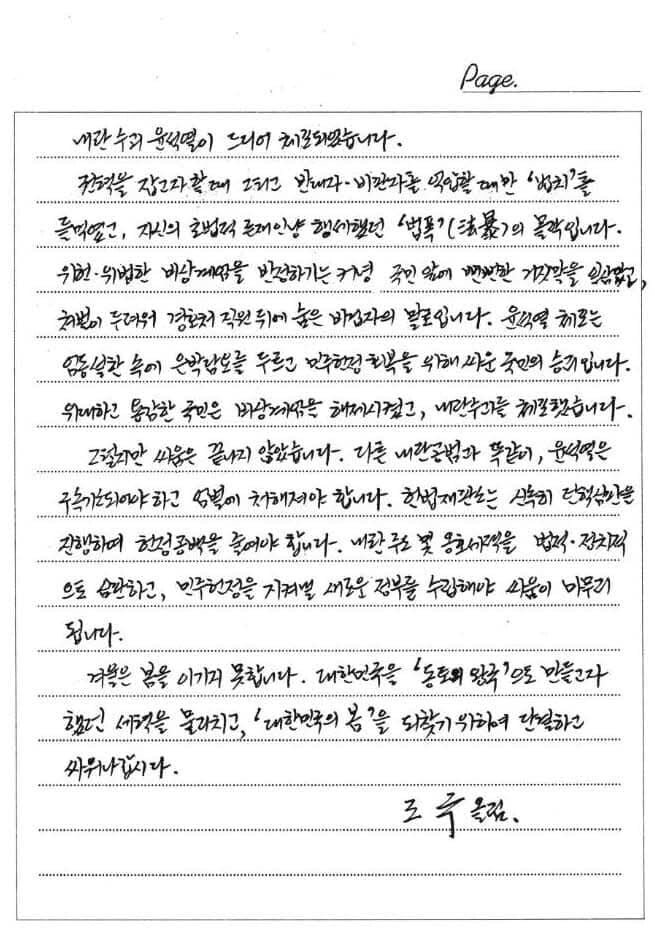 Page.
내란 수괴 윤석열이 드디어 체포되었습니다.
권력을 잡고자 할 때 그리고 반대자·비판자를 억압할 때만 '법치'를
들먹였고, 자신의 초법적 존재인냥 행세했던 '법폭'(法暴)의 몰락입니다.
위헌·위법한 비상계엄을 반성하기는 커녕 국민 앞에 뻔뻔한 거짓말을 일삼았고,
처벌이 두려워 경호처 직원 뒤에 숨은 비겁자의 말로입니다. 윤석열 체포는
엄동설한 속에 은박담요를 두르고 민주헌정 회복을 위해 싸운 국민의 승리입니다.
위대하고 용감한 국민은 비상계엄을 해제시켰고, 내란수괴를 체포했습니다.
그렇지만 싸움은 끝나지 않았습니다. 다른 내란공범과 똑같이, 윤석열은
구속기소되어야 하고 엄벌에 처해져야 합니다. 헌법재판소는 신속히 탄핵심판을
진행하며 헌정공백을 줄여야 합니다. 내란 주도 및 옹호세력을 법적·정치적
으로 심판하고, 민주헌정을 지켜낼 새로운 정부를 수립해야 싸움이 마무리
됩니다.
겨울은 봄을 이기지 못합니다. 대한민국을 '동토의 왕국'으로 만들고자
했던 세력을 물리치고, '대한민국의 봄'을 되찾기 위하여 단결하고
싸워나갑시다.
조국 올림.